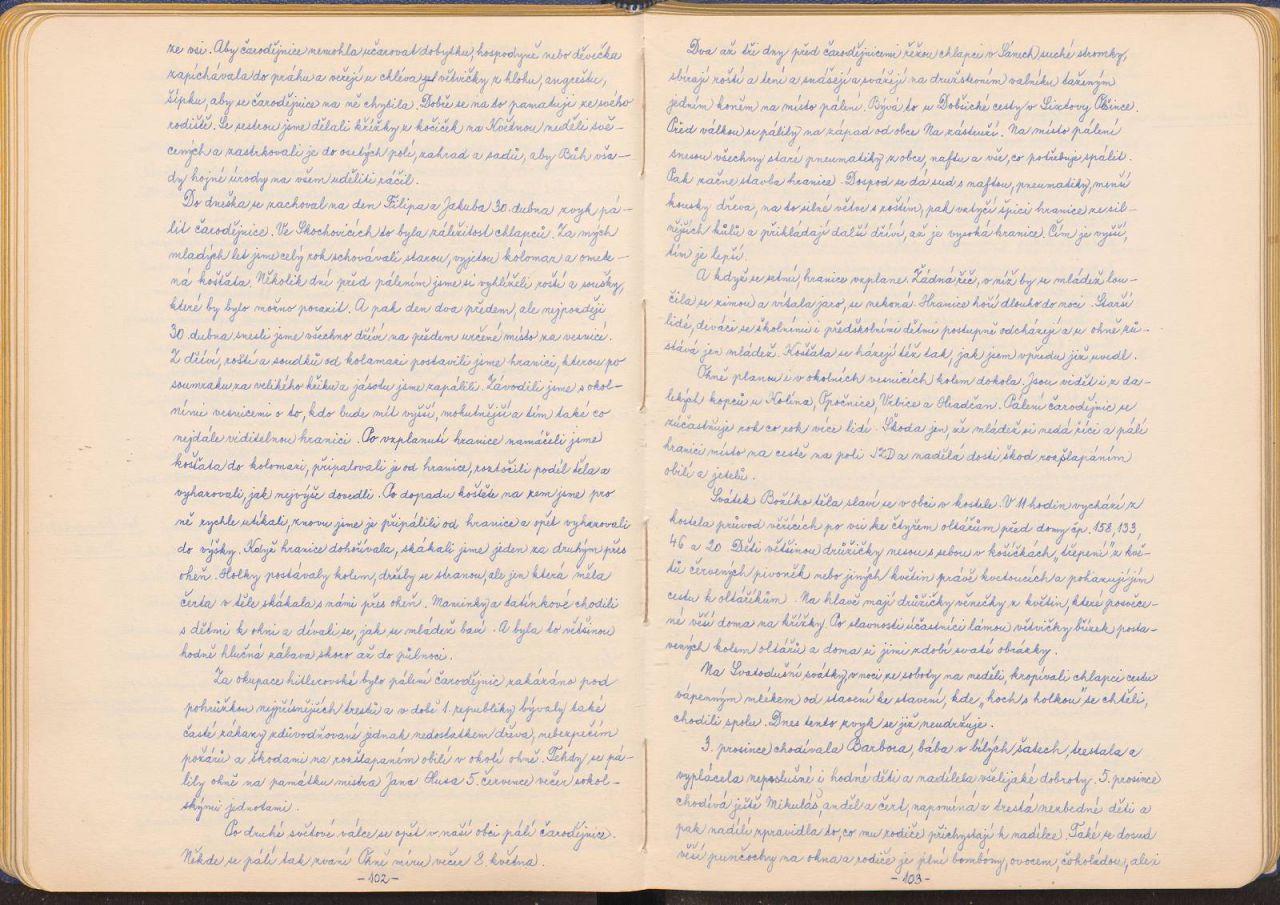 ze vsi. Aby čarodějnice nemohla učarovat dobytku, hospodyně nebo děvečka
zapichávala do prahu a veřejí u chléva větvičky z hlohu, angreštu,
šípku, aby se čarodějnice na ně chytila. Dobře se na to pamatuji ze svého
rodiště. Se sestrou jsme dělali křížky z kočiček na Květnou neděli svě-
cených a zastrkovali je do osetých polí, zahrad a sadů, aby Bůh vša-
dy hojné úrody na všem uděliti ráčil.
Do dneška se zachoval na den Filipa a Jakuba 30. dubna zvyk pá-
lit čarodějnice. Ve Skochovicích to byla záležitost chlapců. Za mých
mladých let jsme celý rok schovávali starou, vyjetou kolomaz a omete-
ná košťata. Několik dní před pálením jsme si vyhlíželi roští a soušky,
které by bylo možno porazit. A pak den dva předem, ale nejpozději
30. dubna snesli jsme všechno dříví na předem určené místo za vesnicí.
Z dříví, roští a soudků od kolomazi postavili jsme hranici, kterou po
soumraku za velikého křiku a jásotu jsme zapálili. Závodili jsme s okol-
ními vesnicemi o to, kdo bude mít vyšší, mohutnější a tím také co
nejdále viditelnou hranici. Po vzplanutí hranice namáčeli jsme
košťata do kolomazi, připalovali je od hranice, roztočili podél těla a
vyhazovali, jak nejvýše dovedli. Po dopadu koštěte na zem jsme pro
ně rychle utíkali, znovu jsme je připálili od hranice a opět vyhazovali
do výšky. Když hranice dohořívala, skákali jsme jeden za druhým přes
oheň. Holky postávaly kolem, držely se stranou, ale jen která měla
čerta v těle skákala s námi přes oheň. Maminky a tatínkové chodili
s dětmi k ohni a dívali se, jak se mládež baví. A byla to většinou
hodně hlučná zábava skoro až do půlnoci.
Za okupace hitlerovské bylo pálení čarodějnic zakázáno pod
pohrůžkou nejpřísnějších trestů a v době 1. republiky bývaly také
časté zákazy zdůvodňované jednak nedostatkem dřeva, nebezpečím
požárů a škodami na rozšlapaném obilí v okolí ohně. Tehdy se pá-
lily ohně na památku mistra Jana Husa 5. července večer sokol-
skými jednotami.
Po druhé světové válce se opět v naší obci pálí čarodějnice.
Někde se pálí tak zvané Ohně míru večer 8. května.
-102-
Dva až tři dny před čarodějnicemi řežou chlapci v Sánech suché stromky,
sbírají roští a ten a snášejí a svážejí na družstevním valníku taženým
jedním koněm na místo pálení. Bývá to u Dobšické cesty v Sixtovy Olšince.
Před válkou se pálily na západ od obce Na zástruží. Na místo pálení
snesou všechny staré pneumatiky z obce, naftu a vše, co potřebuje spálit.
Pak začne stavba hranice. Dospod se dá sud s naftou, pneumatiky, menší
kousky dřeva, na to silné větve s roštím, pak vztyčí špici hranice ze sil-
nějších kůlů a přikládají další dříví, až je vysoká hranice. Čím je vyšší,
tím je lepší.
A když se setmí, hranice vzplane. Žádná řeč, v níž by se mládež lou-
čila se zimou a vítala jaro, se nekoná. Hranice hoří dlouho do noci. Starší
lidé, diváci se školními i předškolními dětmi postupně odcházejí a u ohně zů-
stává jen mládež. Košťata se házejí též tak, jak jsem vpředu již uvedl.
Ohně planou i v okolních vesnicích kolem dokola. Jsou vidět i z da-
lekých kopců u Kolína, Opočnice, Vrbice a Hradčan. Pálení čarodějnic se
zúčastňuje rok co rok více lidí. Škoda jen, že mládež si nedá říci a pálí
hranici místo na cestě na poli JZD a nadělá dosti škod rozšlapáním
obilí a jetelů.
Svátek Božího těla slaví se v obci v kostele. V 11 hodin vychází z
kostela průvod věřících po vsi ke čtyřem oltářům před domy čp. 158, 133,
46 a 20. Děti většinou družičky nesou s sebou v košíčkách „třepení" z kvě-
tů červených pivoněk nebo jiných květin právě kvetoucích a pohazují jím
cestu k oltáříkům. Na hlavě mají družičky věnečky z květin, které posvěce-
né věší doma na křížky. Po slavnosti účastníci lámou větvičky břízek posta-
vených kolem oltářů a doma si jimi zdobí svaté obrázky.
Na Svatodušní svátky v noci ze soboty na neděli, kropívali chlapci cestu
vápenným mlékem od stavení ke stavení, kde „hoch s holkou" se chtěli,
chodili spolu. Dnes tento zvyk se již neudržuje.
3. prosince chodívala Barbora, bába v bílých šatech, trestala a
vyplácela neposlušné i hodné děti a nadílela všelijaké dobroty. 5. prosince
chodívá ještě Mikuláš, anděl a čert, napomíná a trestá nezbedné děti a
pak nadílí zpravidla to, co mu rodiče přichystají k nadílce. Také se dosud
věší punčochy na okna a rodiče je plní bombóny, ovocem, čokoládou, ale i
-103-